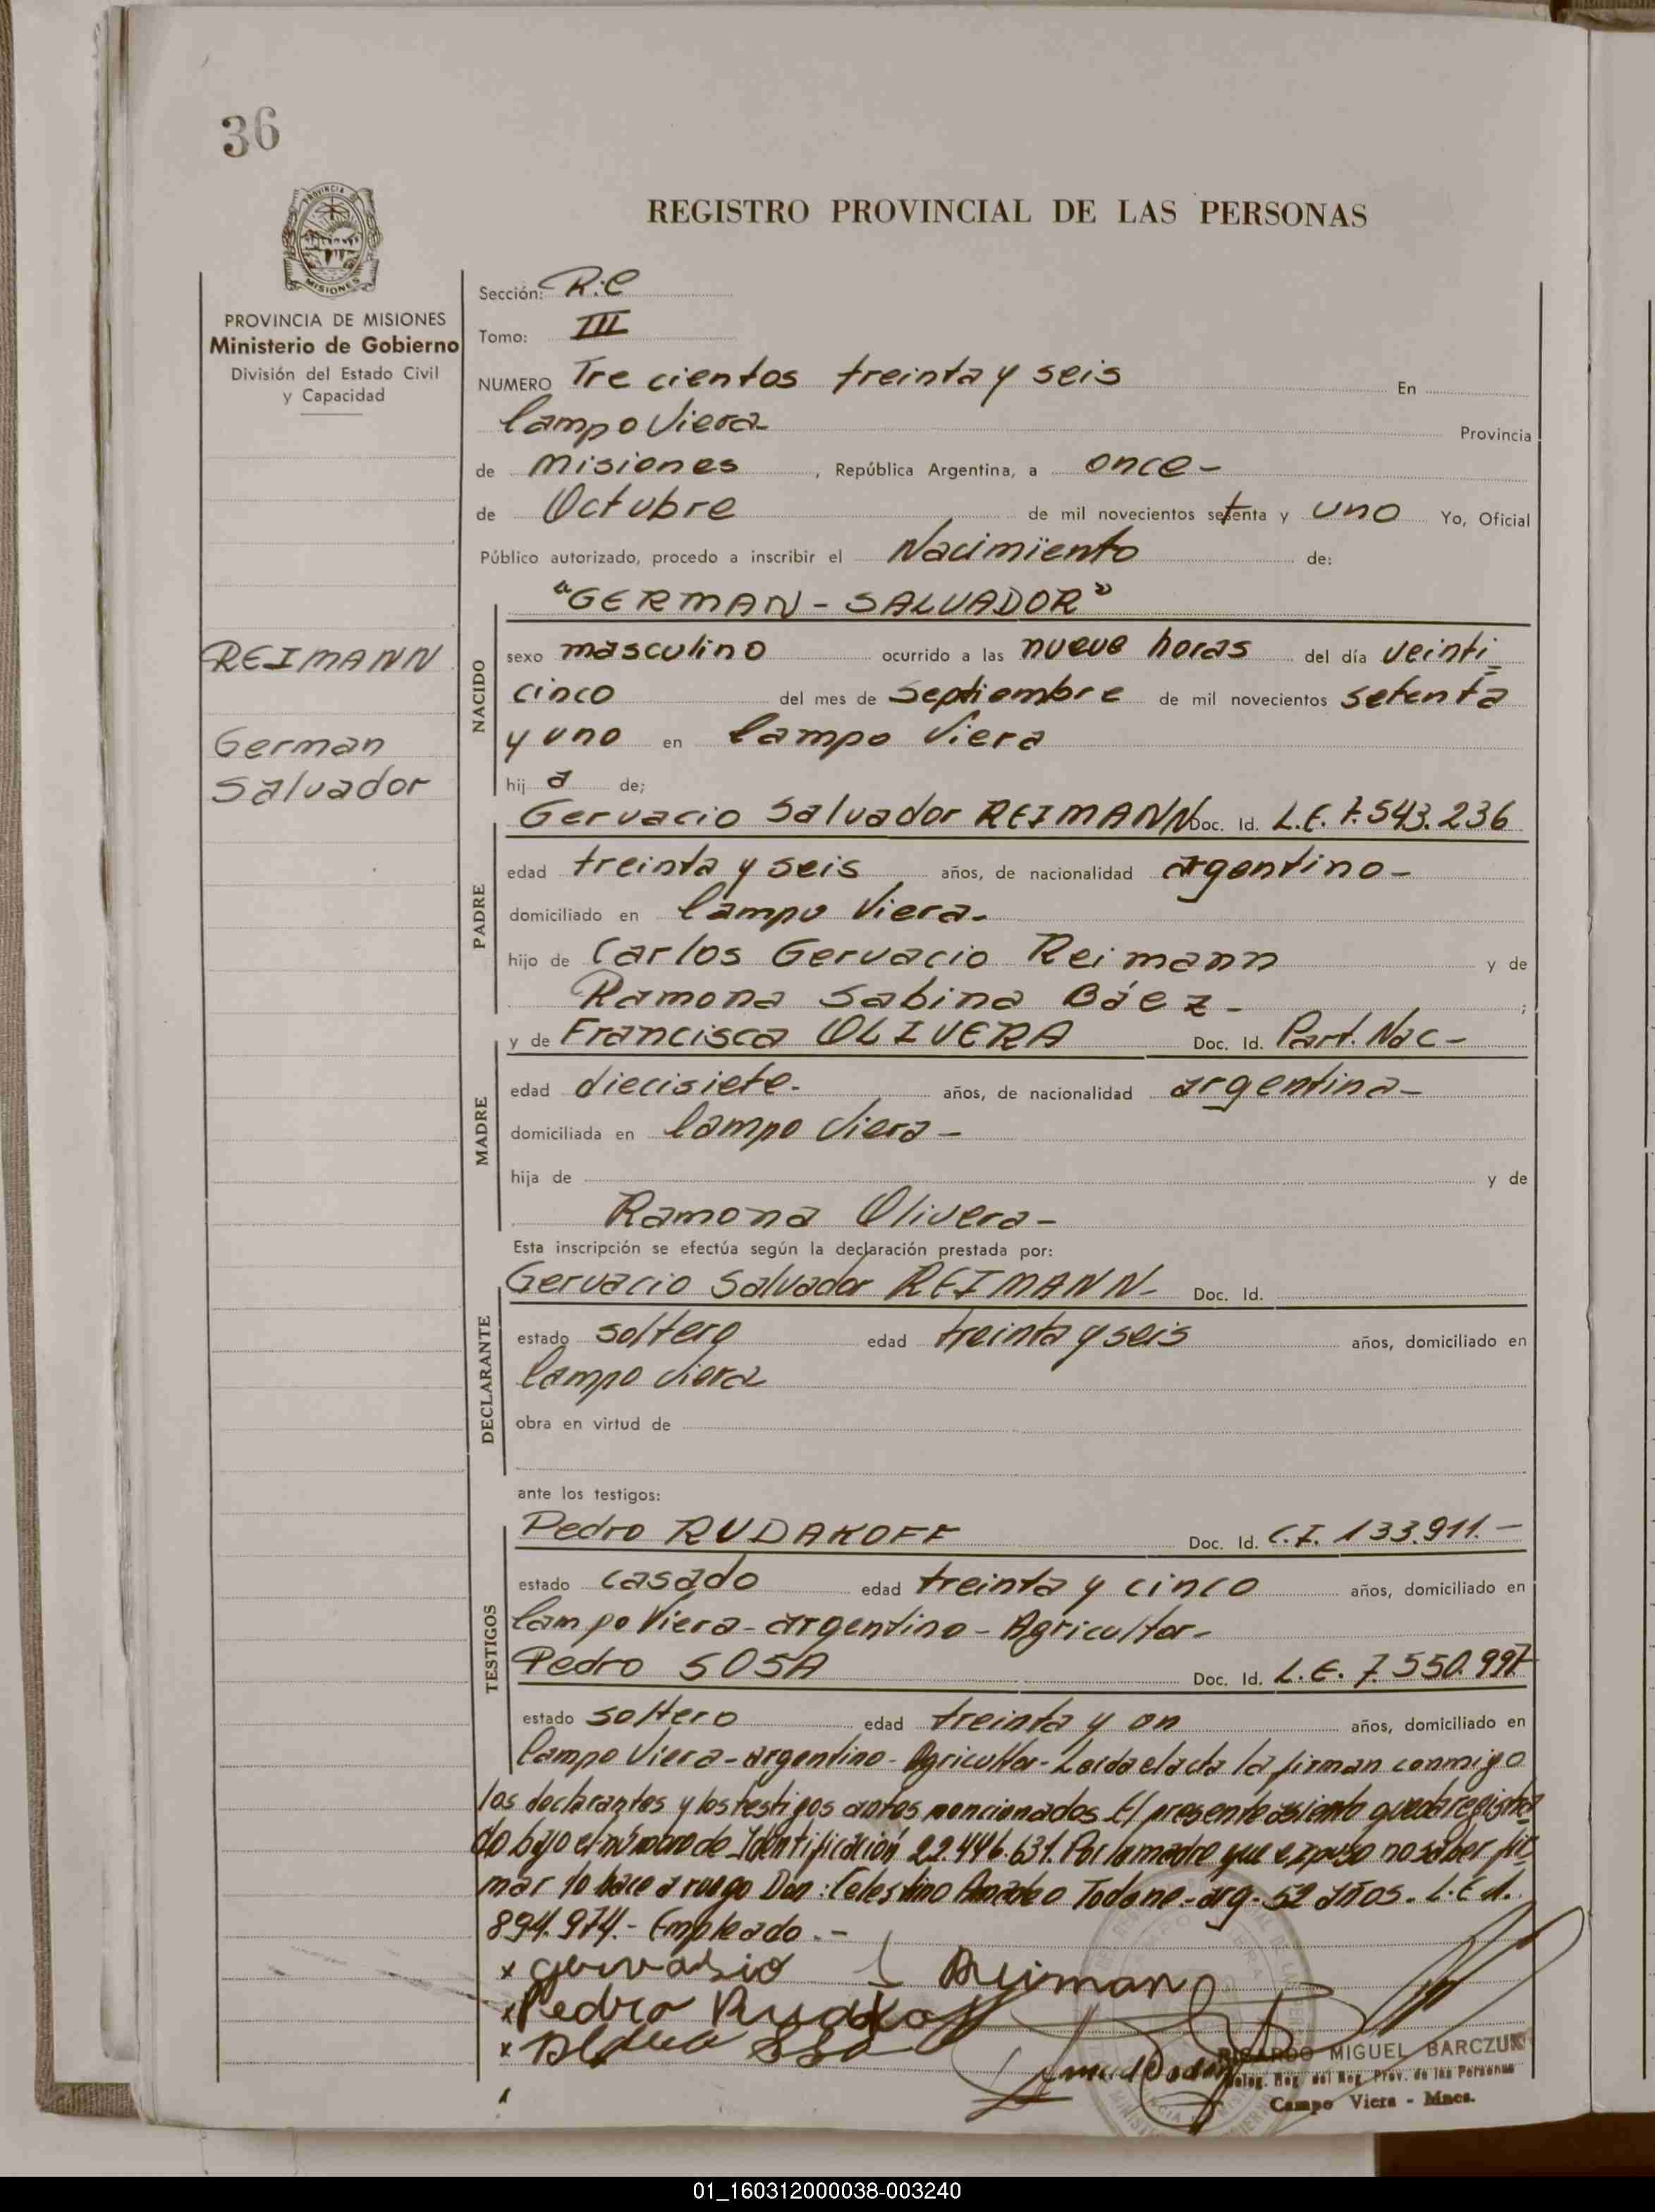 36
PROVINCIA
MISIONES
REGISTRO PROVINCIAL DE LAS PERSONAS
PROVINCIA DE MISIONES
Ministerio de Gobierno
División del Estado Civil
y Capacidad
REIMANN
German
Salvador
Sección: R.C
Tomo: III
NUMERO Tre cientos treinta y seis En
Campo Viera-
Provincia
de Misiones, República Argentina, a once-
de Octubre de mil novecientos setenta y uno Yo, Oficial
Público autorizado, procedo a inscribir el Nacimiento de:
"GERMAN - SALVADOR"
NACIDO
sexo masculino ocurrido a las nueve horas del día veinti=
cinco del mes de Septiembre de mil novecientos setenta
y uno en Campo Viera
hij a de;
PADRE
Gervacio Salvador REIMANN Doc. Id. L.E. 7.543.236
edad treinta y seis años, de nacionalidad argentino-
domiciliado en Campo Viera-
hijo de Carlos Gervacio Reimann y de
Ramona Sabina Báez- ;
MADRE
y de Francisca OLIVERA Doc. Id. Part. Nac-
edad diecisiete- años, de nacionalidad argentina-
domiciliada en Campo Viera-
hija de y de
Ramona Olivera-
Esta inscripción se efectúa según la declaración prestada por:
DECLARANTE
Gervacio Salvador REIMANN- Doc. Id.
estado soltero edad treinta y seis años, domiciliado en
Campo Viera
obra en virtud de
ante los testigos:
TESTIGOS
Pedro RUDAKOFF Doc. Id. C.I. 133.911.-
estado casado edad treinta y cinco años, domiciliado en
Campo Viera-argentino-Agricultor-
Pedro SOSA Doc. Id. L.E. 7.550.997
estado soltero edad treinta y on años, domiciliado en
Campo Viera-argentino-Agricultor-Leida el acta la firman conmigo
los declarantes y los testigos antes mencionados. El presente asiento queda registra
do bajo el número de Identificación 22.446.631. Por la madre que expuso no saber fir
mar lo hace a ruego Don: Celestino Amadeo Todone-arg-52 años. L.E 1.
894.974.- Empleado.-
x gervasio S Reimann
x Pedro Rudakoff
x Pedro Sosa
RICARDO MIGUEL BARCZUK
Deleg. Reg. del Reg. Prov. de las Personas
Campo Viera - Mnes.
01_160312000038-003240